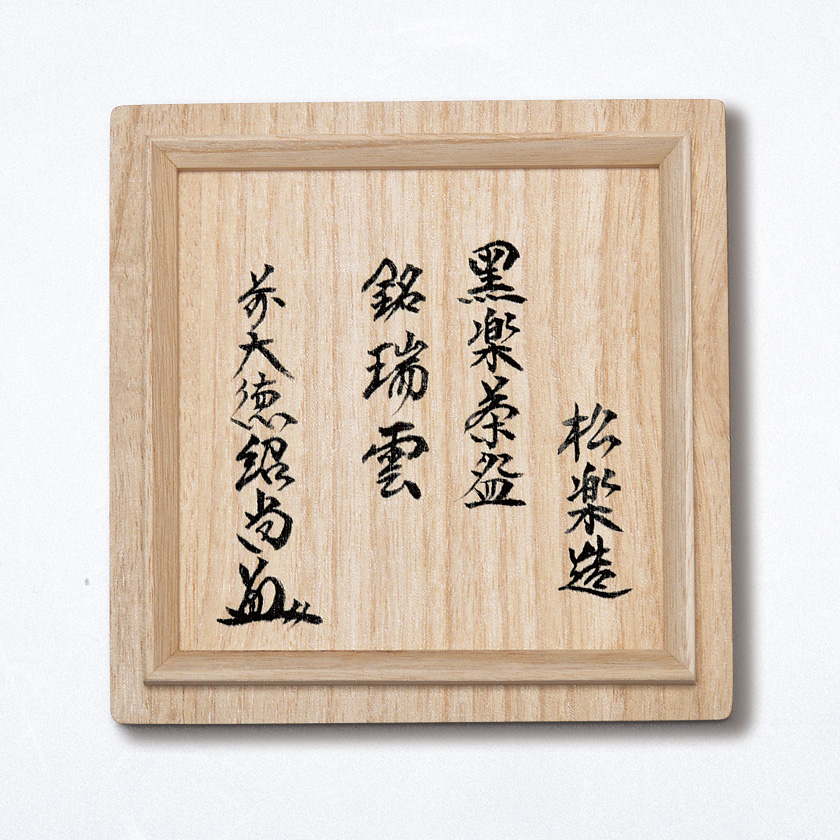 松楽造
黒楽茶盌
銘瑞雲
前大徳紹尚